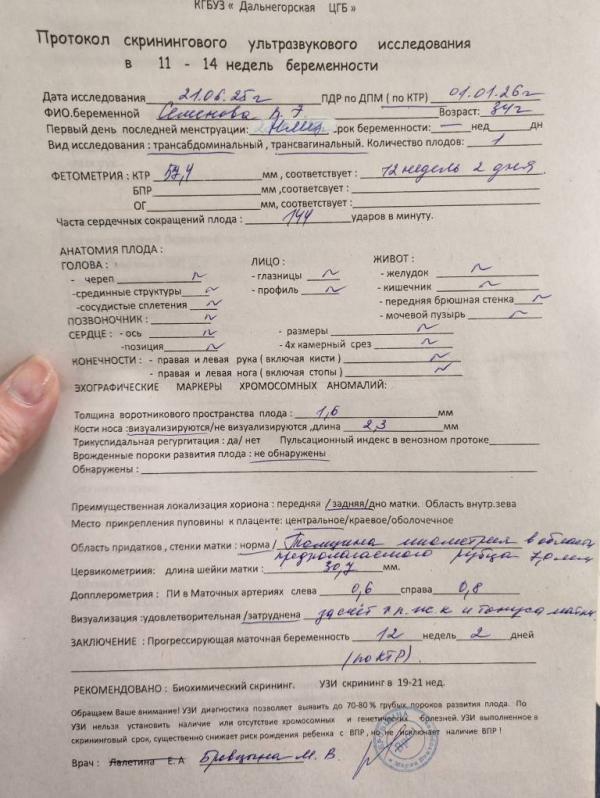 КГБУЗ « Дальнегорская ЦГБ »
Протокол скринингового ультразвукового исследования
в 11 - 14 недель беременности
Дата исследования 21.06.25г ПДР по ДПМ ( по КТР) 01.01.26г
ФИО.беременной Семенова Возраст: 34г
Первый день последней менструации: .рок беременности: — нед. дн
Вид исследования : трансабдоминальный , трансвагинальный. Количество плодов: 1
ФЕТОМЕТРИЯ : КТР 57,4 мм , соответствует : 12 недель 2 дня.
БПР мм ,соответсвует :
ОГ мм, соответствует :
Часта сердечных сокращений плода : 144 ударов в минуту.
АНАТОМИЯ ПЛОДА :
ГОЛОВА : ЛИЦО : ЖИВОТ :
- череп N - глазницы N - желудок N
-срединные структуры N - профиль N - кишечник N
-сосудистые сплетения N - передняя брюшная стенка N
ПОЗВОНОЧНИК : N - мочевой пузырь N
СЕРДЦЕ : - ось N - размеры N
-позиция N - 4х камерный срез N
КОНЕЧНОСТИ : - правая и левая рука ( включая кисти ) N
- правая и левая нога ( включая стопы ) N
ЭХОГРАФИЧЕСКИЕ МАРКЕРЫ ХРОМОСОМНЫХ АНОМАЛИЙ:
Толщина воротникового пространства плода : 1,6 мм
Кости носа :визуализируются/не визуализируются ,длина 2,3 мм
Трикуспидальная регургитация : да/ нет Пульсационный индекс в венозном протоке
Врожденные пороки развития плода : не обнаружены
Обнаружены :
Преимущественная локализация хориона : передняя /задняя/дно матки. Область внутр.зева
Место прикрепления пуповины к плаценте: центральное/краевое/оболочечное
Область придатков , стенки матки : норма / Толщина миометрия в области
предполагаемого рубца 7,0 мм
Цервикометрия: длина шейки матки 30,7 мм.
Допплерометрия : ПИ в Маточных артериях слева 0,6 справа 0,8
Визуализация :удовлетворительная /затруднена за счёт п.ж.к и тонуса матки.
ЗАКЛЮЧЕНИЕ : Прогрессирующая маточная беременность 12 недель 2 дней
(по КТР).
РЕКОМЕНДОВАНО : Биохимический скрининг. УЗИ скрининг в 19-21 нед.
Обращаем Ваше внимание! УЗИ диагностика позволяет выявить до 70-80 % грубых пороков развития плода. По
УЗИ нельзя установить наличие или отсутствие хромосомных и генетических болезней. УЗИ выполненное в
скрининговый срок, существенно снижает риск рождения ребенка с ВПР , но не исключает наличие ВПР !
Врач : Лалетина Е.А Бревцына М. В.